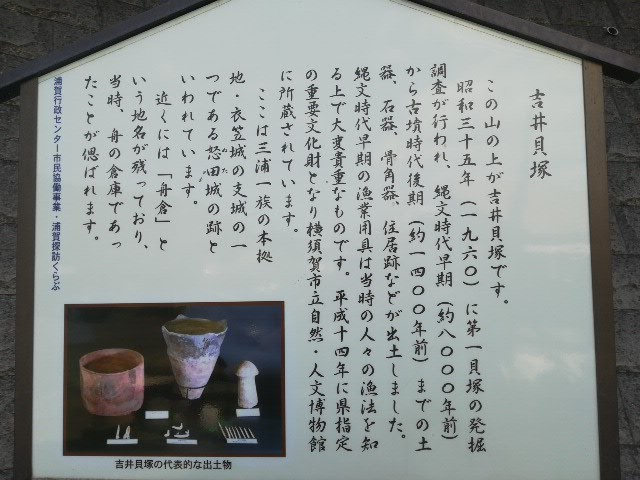 吉井貝塚
この山の上が吉井貝塚です。
昭和三十五年（一九六〇）に第一貝塚の発掘
調査が行われ、縄文時代早期（約八〇〇〇年前）
から古墳時代後期（約一四〇〇年前）までの土
器、石器、骨角器、住居跡などが出土しました。
縄文時代早期の漁業用具は当時の人々の漁法を知
る上で大変貴重なものです。平成十四年に県指定
の重要文化財となり横須賀市立自然・人文博物館
に所蔵されています。
ここは三浦一族の本拠
地・衣笠城の支城の一
つである怒田城の跡と
ぬた
いわれています。
近くには「舟倉」と
いう地名が残っており、
当時、舟の倉庫であっ
たことが偲ばれます。
浦賀行政センター市民協働事業・浦賀探訪くらぶ
吉井貝塚の代表的な出土物